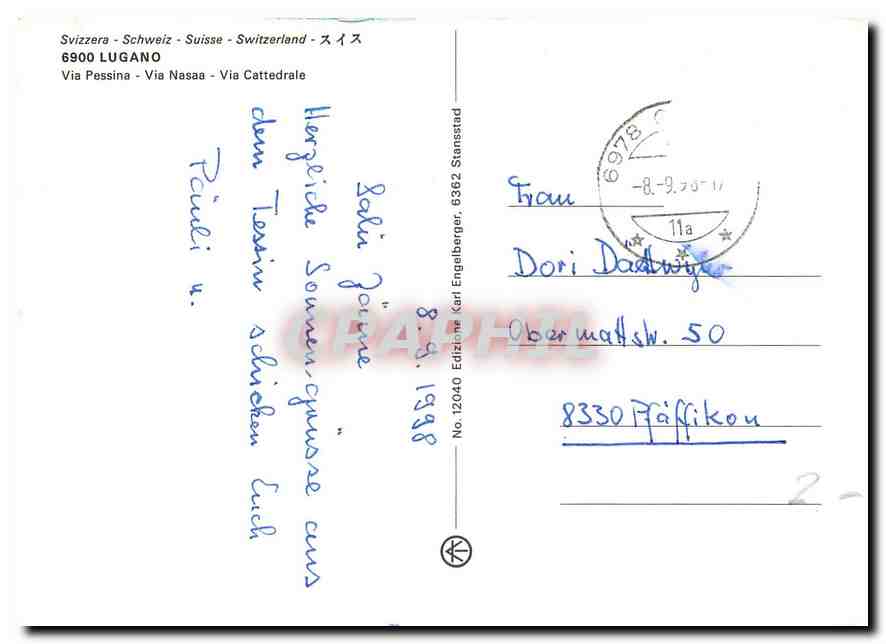 Svizzera - Schweiz - Suisse - Switzerland - スイス
6900 LUGANO
Via Pessina - Via Nasaa - Via Cattedrale
8.9.1998
Salü
Herzliche Sonnengrüsse aus
dem Tessin schicken Euch
u.
No. 12040 Edizione Karl Engelberger, 6362 Stansstad
6978
-8.-9.98-17
11a
Frau
Dori Dättwyler
Obermattstr. 50
8330 Pfäffikon
2 -
CPAPHIL